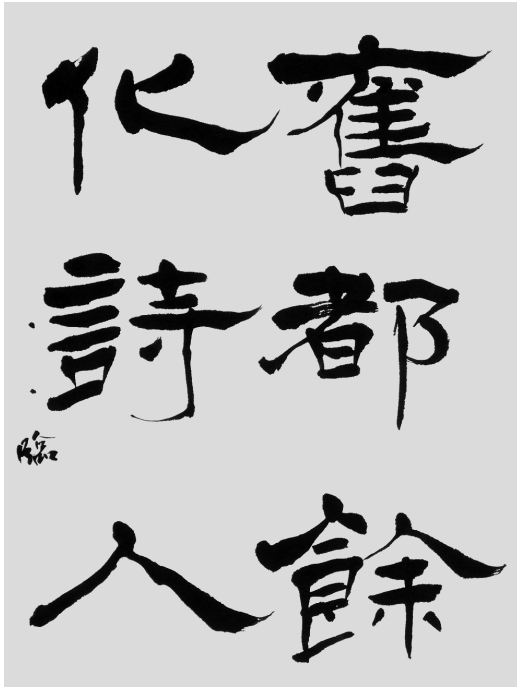 舊都餘
化詩人
臨